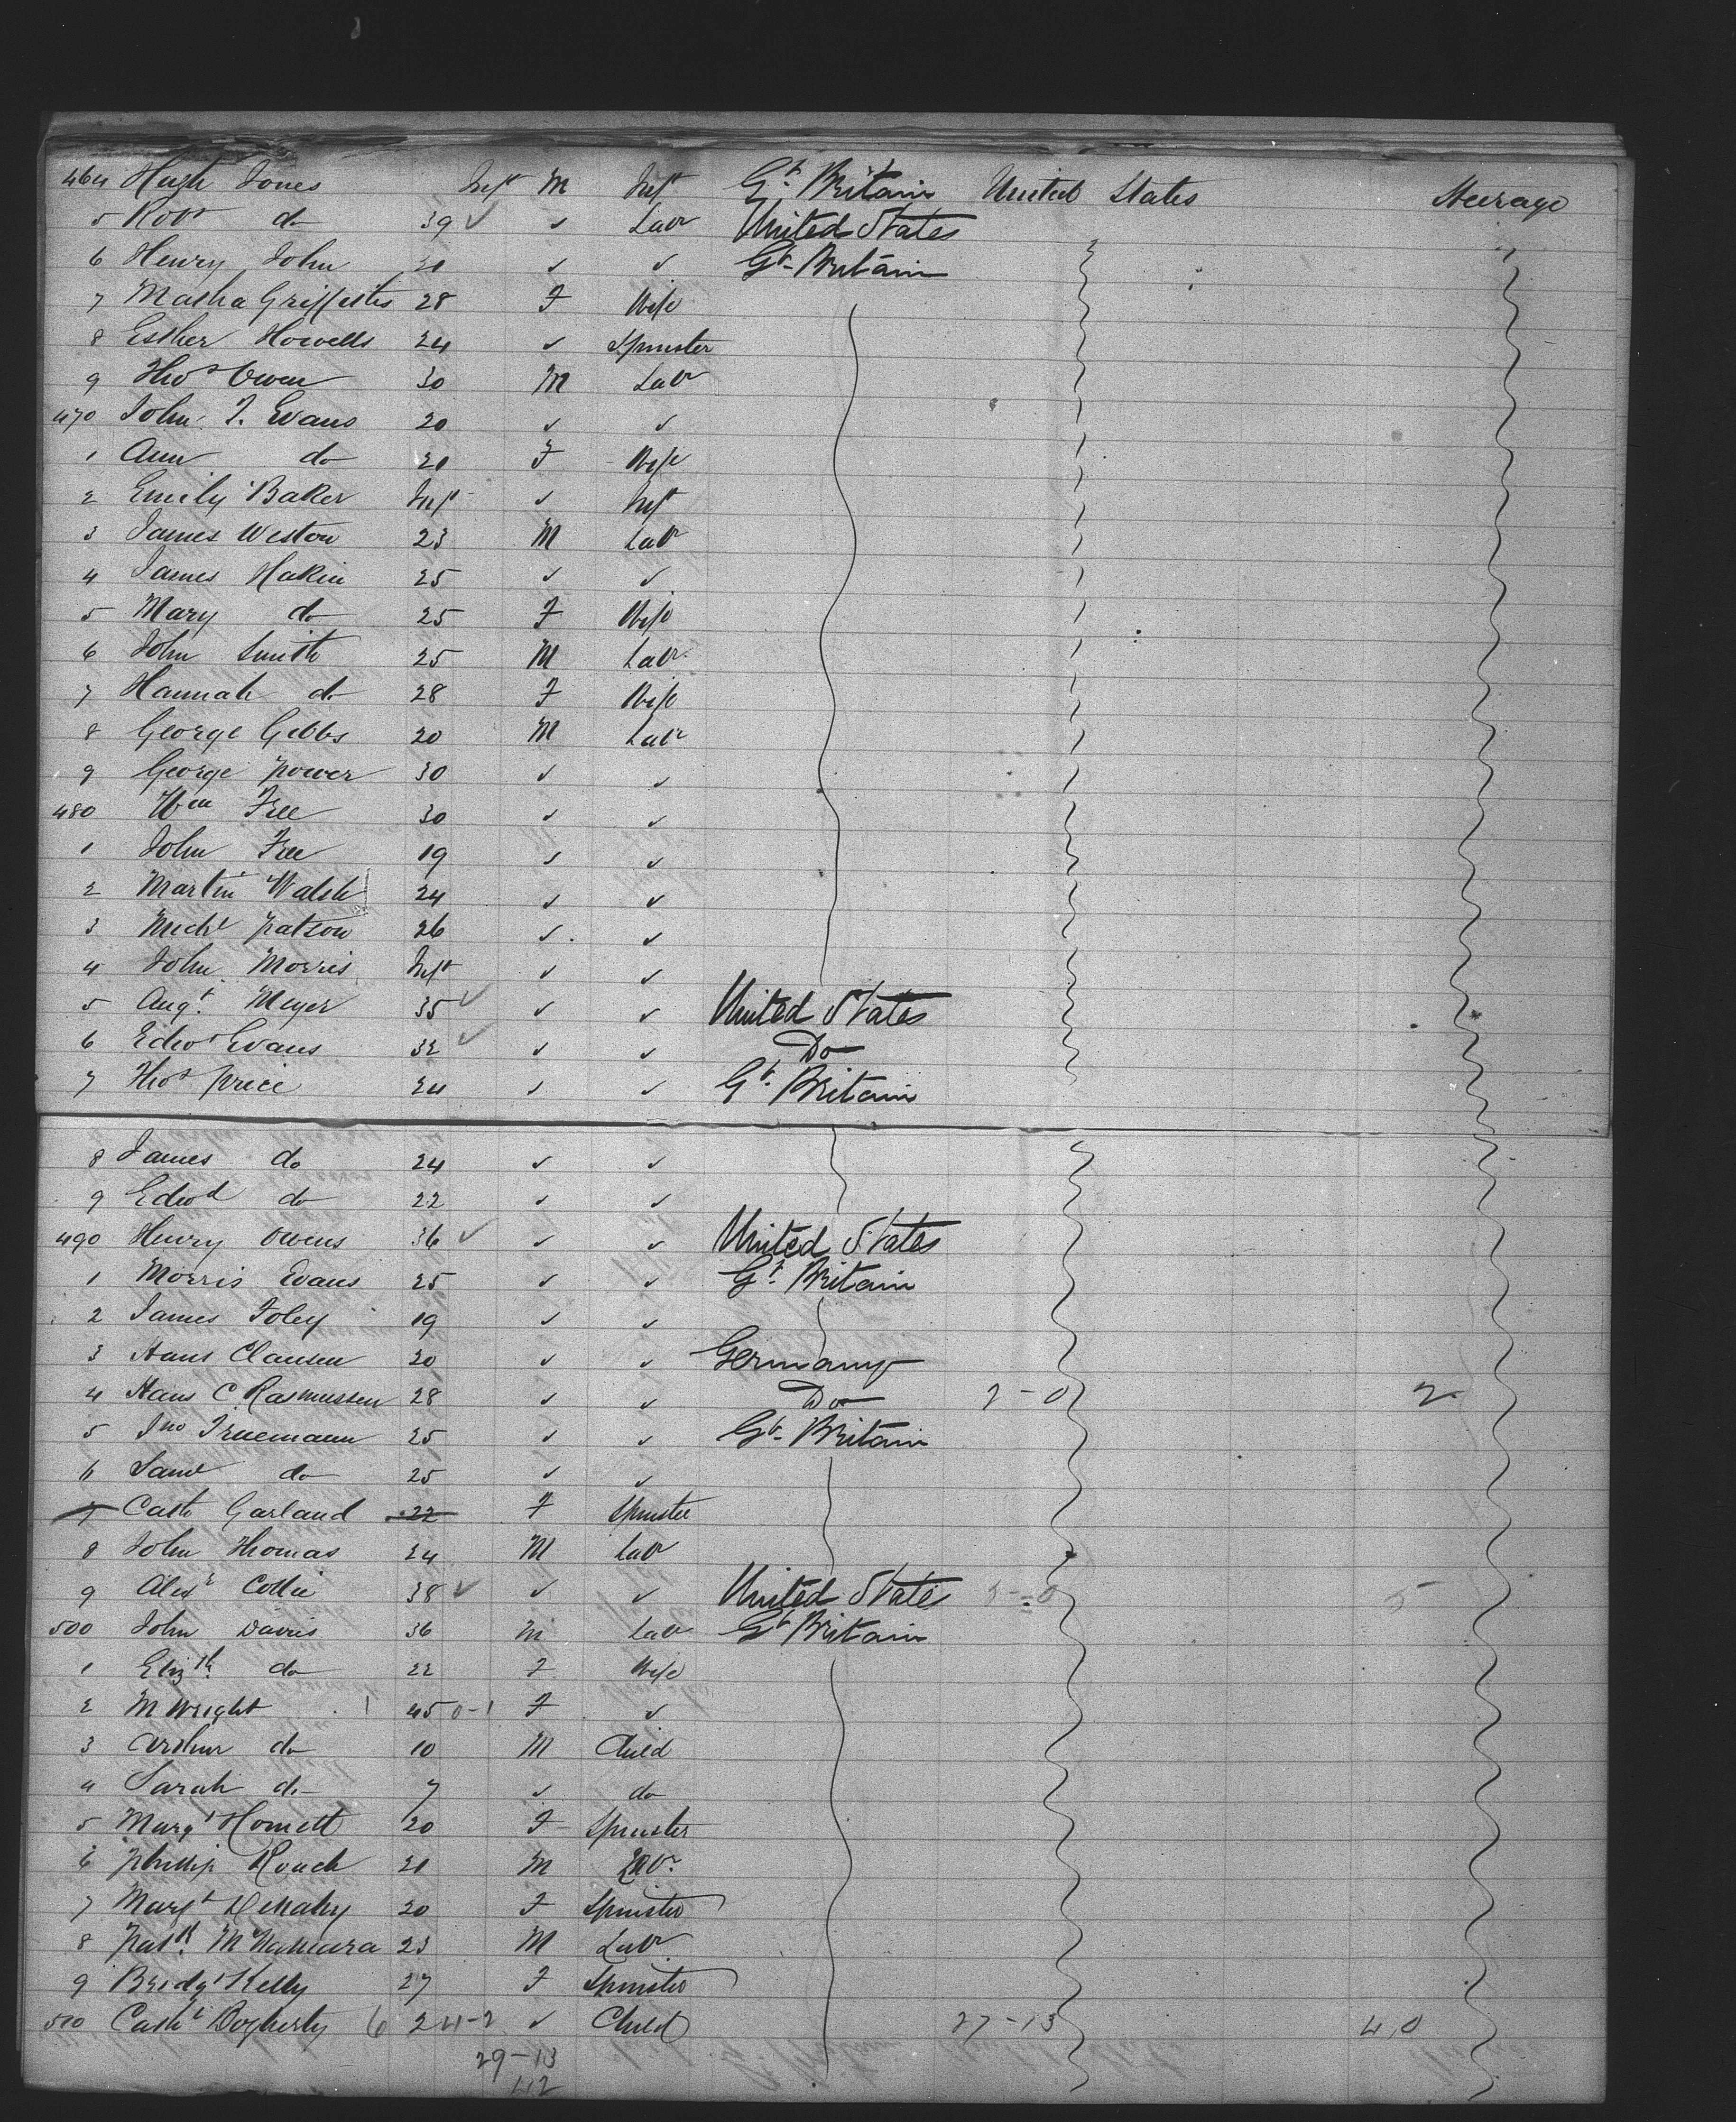 464 Hugh Jones Inft M Inft Gt. Britain United States Steerage
5 Robt do 39 ✓ ✓ Labr United States
6 Henry John 30 ✓ ✓ Gt. Britain
7 Martha Griffiths 28 F Wife
8 Esther Howells 24 ✓ Spinster
9 Thos Owen 30 M Labr
470 John T. Evans 20 ✓ ✓
1 Ann do 20 F Wife
2 Emily Baker Inft ✓ Inft
3 James Weston 23 M Labr
4 James Hakin 25 ✓ ✓
5 Mary do 25 F Wife
6 John Smith 25 M Labr
7 Hannah do 28 F Wife
8 George Gibbs 20 M Labr
9 George Power 30 ✓ ✓
480 Wm Free 30 ✓ ✓
1 John Free 19 ✓ ✓
2 Martin Walsh 24 ✓ ✓
3 Michl Patson 26 ✓ ✓
4 John Morris Inft ✓ ✓
5 Augt. Meyer 35 ✓ ✓ ✓ United States
6 Edwd Evans 32 ✓ ✓ ✓ Do
7 Thos Price 24 ✓ ✓ Gt. Britain
8 James do 24 ✓ ✓
9 Edwd do 22 ✓ ✓
490 Henry Owens 36 ✓ ✓ ✓ United States
1 Morris Evans 25 ✓ ✓ Gt. Britain
2 James Foley 19 ✓ ✓
3 Hans Clausen 20 ✓ ✓ Germany
4 Hans C. Rasmussen 28 ✓ ✓ Do 2-0 2
5 Jno Truemann 25 ✓ ✓ Gt. Britain
6 Saml do 25 ✓ ✓
7 Cath Garland 22 F Spinster
8 John Thomas 24 M Labr
9 Alexr Collie 38 ✓ ✓ ✓ United States 5-0 5
500 John Davis 36 M Labr Gt. Britain
1 Elizth. do 22 F Wife
2 M Wright 45 0-1 F ✓
3 Arthur do 10 M Child
4 Sarah do 7 ✓ do
5 Margt Howett 20 F Spinster
6 Phillip Roach 20 M Labr.
7 Margt 20 F Spinster
8 Patk. McNamara 23 M Labr
9 Bridgt Kelly 27 F Spinster
510 Catht Dogherty 6 24-2 ✓ Child 27-13 40
29-13
112